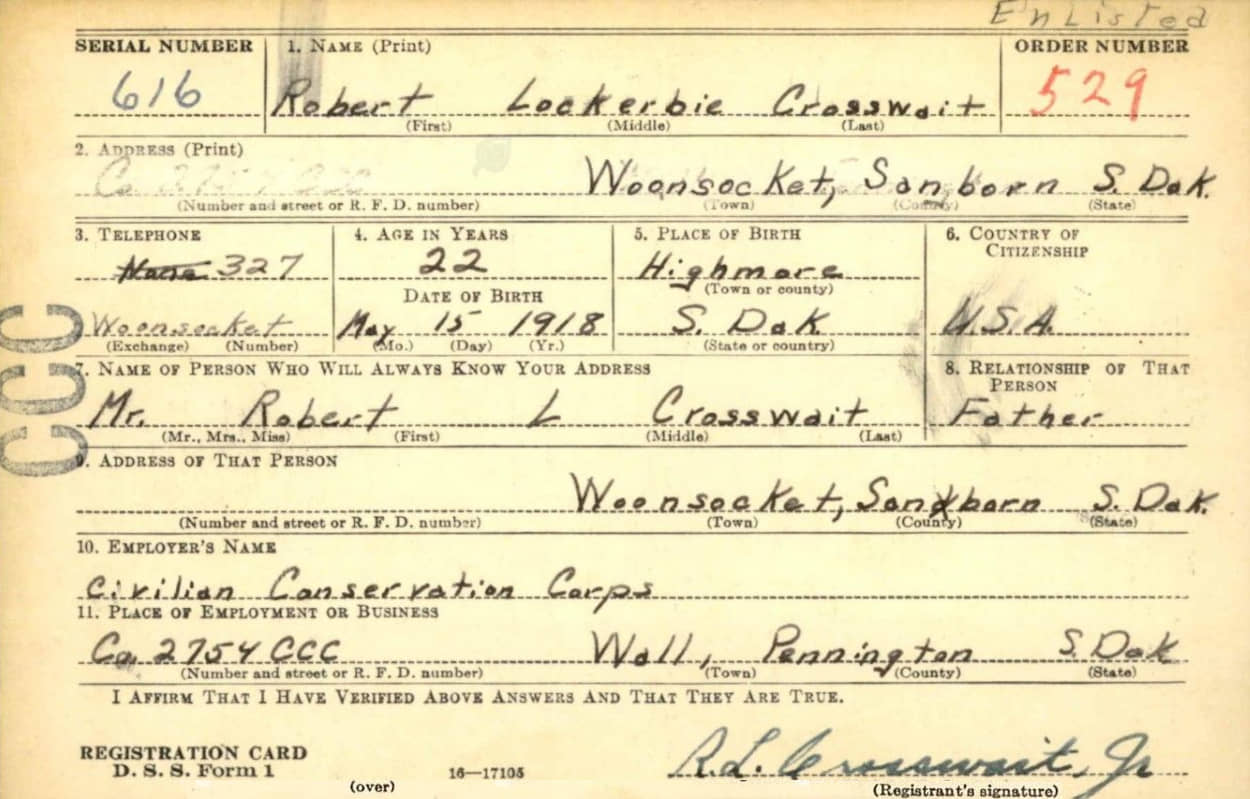 Enlisted
SERIAL NUMBER 1. NAME (Print) ORDER NUMBER
616 Robert Lockerbie Crosswait 529
(First) (Middle) (Last)
2. ADDRESS (Print)
Co. 2754 CCC Woonsocket, Sanborn S. Dak.
(Number and street or R. F. D. number) (Town) (County) (State)
3. TELEPHONE 4. AGE IN YEARS 5. PLACE OF BIRTH 6. COUNTRY OF
CITIZENSHIP
None 327 22 Highmore
(Town or county)
DATE OF BIRTH
Woonsocket May 15 1918 S. Dak U.S.A.
(Exchange) (Number) (Mo.) (Day) (Yr.) (State or country)
7. NAME OF PERSON WHO WILL ALWAYS KNOW YOUR ADDRESS 8. RELATIONSHIP OF THAT
PERSON
Mr. Robert L Crosswait Father
(Mr., Mrs., Miss) (First) (Middle) (Last)
9. ADDRESS OF THAT PERSON
Woonsocket, Sanborn S. Dak.
(Number and street or R. F. D. number) (Town) (County) (State)
10. EMPLOYER'S NAME
Civilian Conservation Corps
11. PLACE OF EMPLOYMENT OR BUSINESS
Co. 2754 CCC Wall, Pennington S. Dak
(Number and street or R. F. D. number) (Town) (County) (State)
I AFFIRM THAT I HAVE VERIFIED ABOVE ANSWERS AND THAT THEY ARE TRUE.
REGISTRATION CARD R.L. Crosswait, Jr
D. S. S. Form 1 16—17105
(over) (Registrant's signature)
CCC